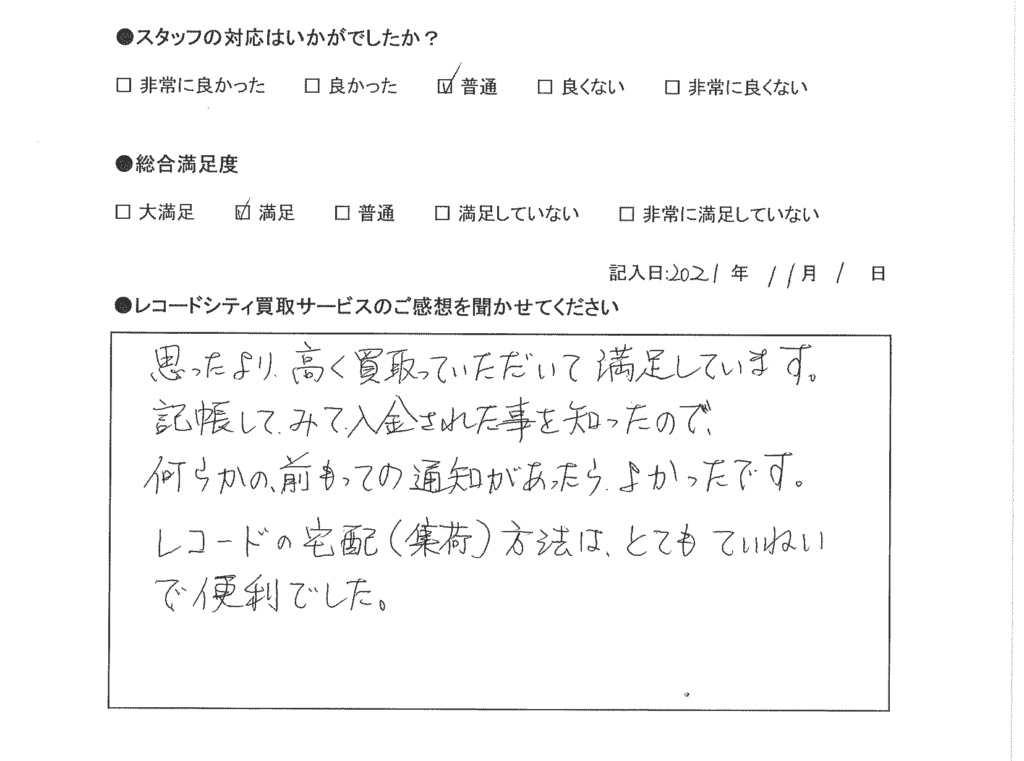 ●スタッフの対応はいかがでしたか?
□ 非常に良かった □ 良かった ☑ 普通 □ 良くない □ 非常に良くない
●総合満足度
□ 大満足 ☑ 満足 □ 普通 □ 満足していない □ 非常に満足していない
記入日:2021年 11月 1 日
●レコードシティ買取サービスのご感想を聞かせてください
思ったより、高く買取っていただいて満足しています。
記帳して、みて、入金された事を知ったので、
何らかの、前もっての通知があったら、よかったです。
レコードの宅配(集荷)方法は、とてもていねい
で便利でした。